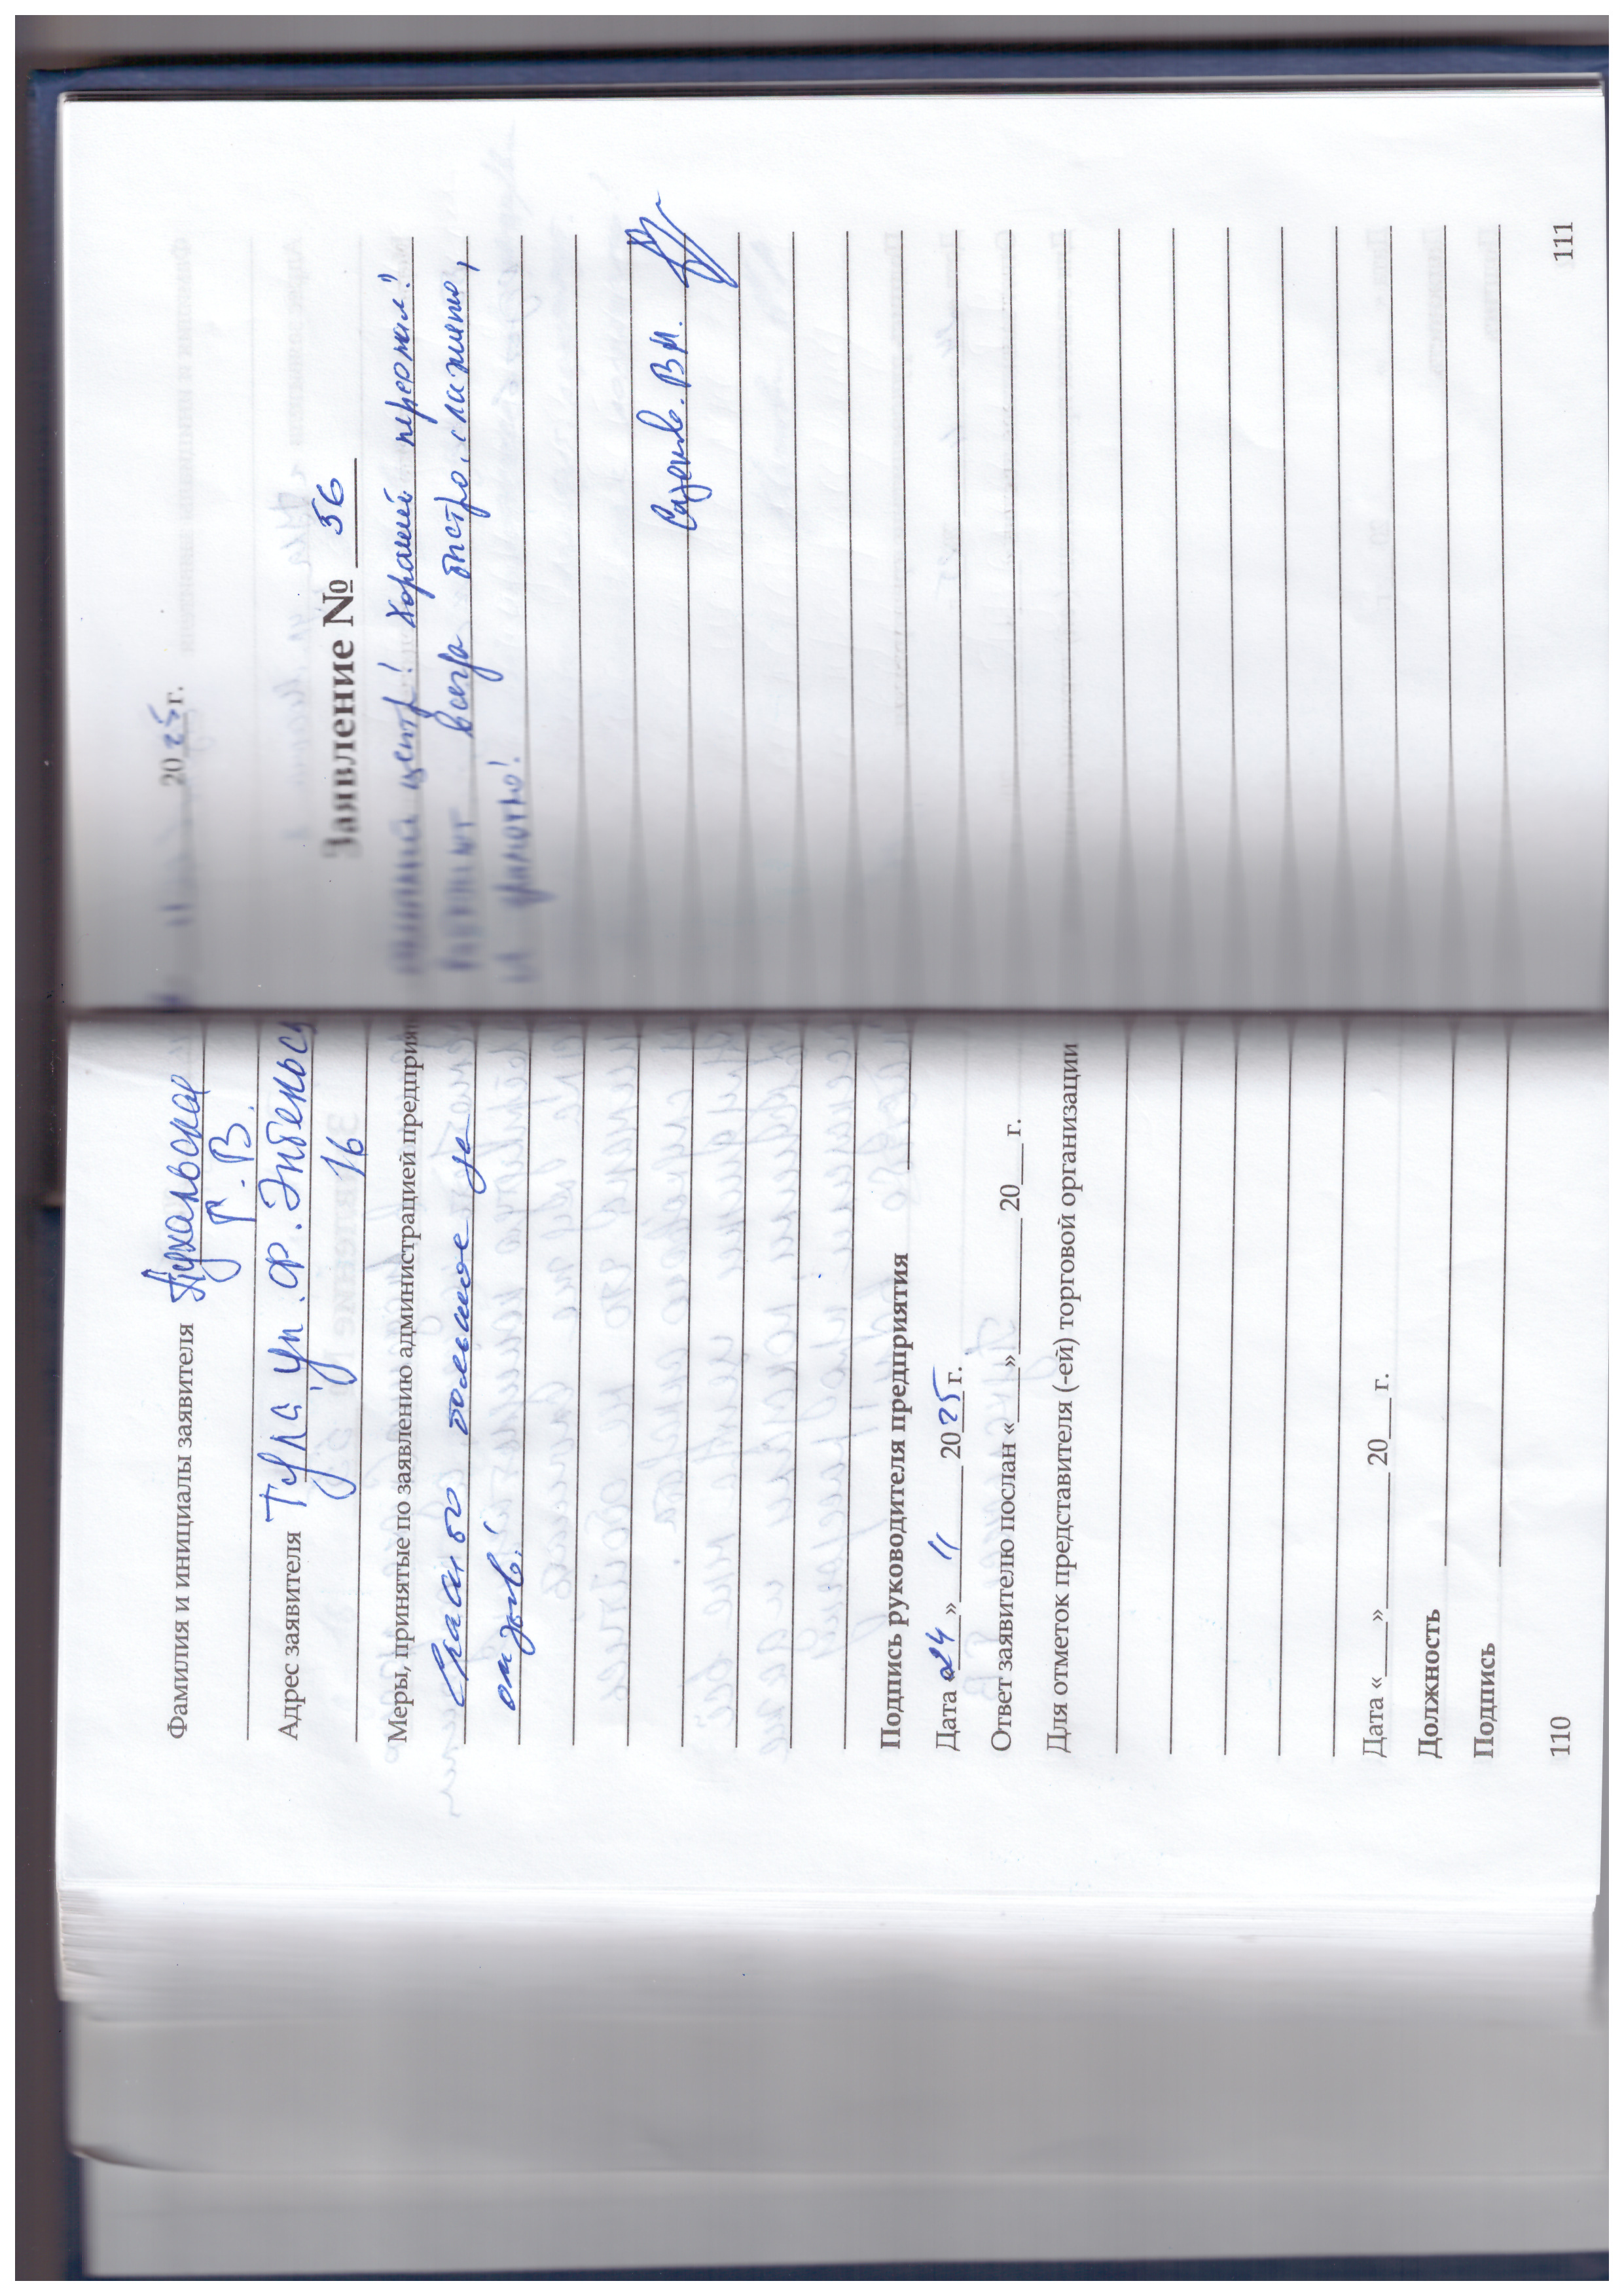 Фамилия и инициалы заявителя
Г. В.
Адрес заявителя Тула ул. Ф. Энгельса
16
Меры, принятые по заявлению администрацией предприя
Спасибо большое за
отзыв!
Подпись руководителя предприятия
Дата «24» 11 2025 г.
Ответ заявителю послан «___»________ 20___ г.
Для отметок представителя (-ей) торговой организации
Дата «___»________ 20___ г.
Должность
Подпись
110
2025 г.
Заявление № 56
центр! Хороший персонал!
всегда быстро, слаженно,
и грамотно!
В.И.
111